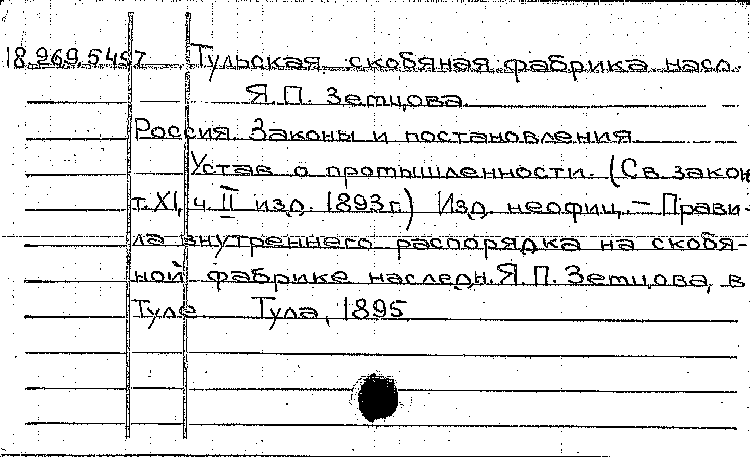 18.969.5457 Тульская скобяная фабрика насл.
Я.П. Земцова.
Россия. Законы и постановления
Устав о промышленности. (Св. закон
т. XI, ч. II изд. 1893г.) Изд. неофиц. – Прави-
ла внутреннего распорядка на скобя-
ной фабрике наследн. Я.П. Земцова, в
Туле. Тула, 1895